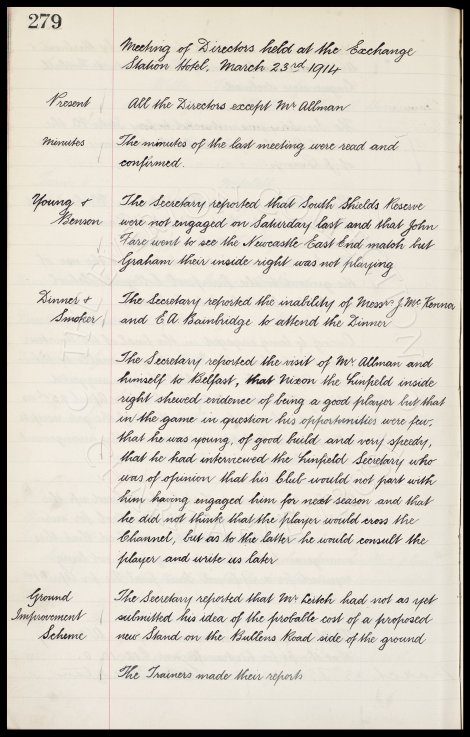 279
Meeting of Directors held at the Exchange
Station Hotel, March 23rd 1914
Present All the Directors except Mr Allman
Minutes The minutes of the last meeting were read and
confirmed.
Young & The Secretary reported that South Shields Reserve
Benson were not engaged on Saturday last and that John
Fare went to see the Newcastle East End match but
Graham their inside right was not playing
Dinner & The Secretary reported the inability of Messrs J. McKenna
Smoker and E A Bainbridge to attend the Dinner
The Secretary reported the visit of Mr Allman and
himself to Belfast, that Nixon the Linfield inside
right shewed evidence of being a good player but that
in the game in question his opportunities were few,
that he was young, of good build and very speedy,
that he had interviewed the Linfield Secretary who
was of opinion that his Club would not part with
him having engaged him for next season and that
he did not think that the player would cross the
Channel, but as to the latter he would consult the
player and write us later
Ground The Secretary reported that Mr Leitch had not as yet
Improvement submitted his idea of the probable cost of a proposed
Scheme new Stand on the Bullens Road side of the ground
The Trainers made their reports